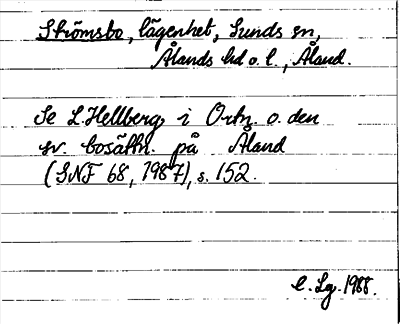 Strömsbo, lägenhet, Sunds sn,
Ålands hd o. l., Åland.
Se L. Hellberg i Ortn. o. den
sv. bosättn. på Åland
(SNF 68, 1987), s. 152.
C. Lg. 1988.